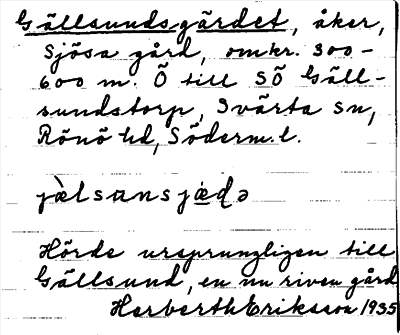 Gällsundsgärdet, åker,
Sjösa gård, omkr. 300-
600 m. Ö till SÖ Gäll-
sundstorp, Svärta sn,
Rönö hd, Söderm. l.
jὲlsɯnsjæ̀ḍə
Hörde ursprungligen till
Gällsund, en nu riven gård
Herberth Eriksson 1935